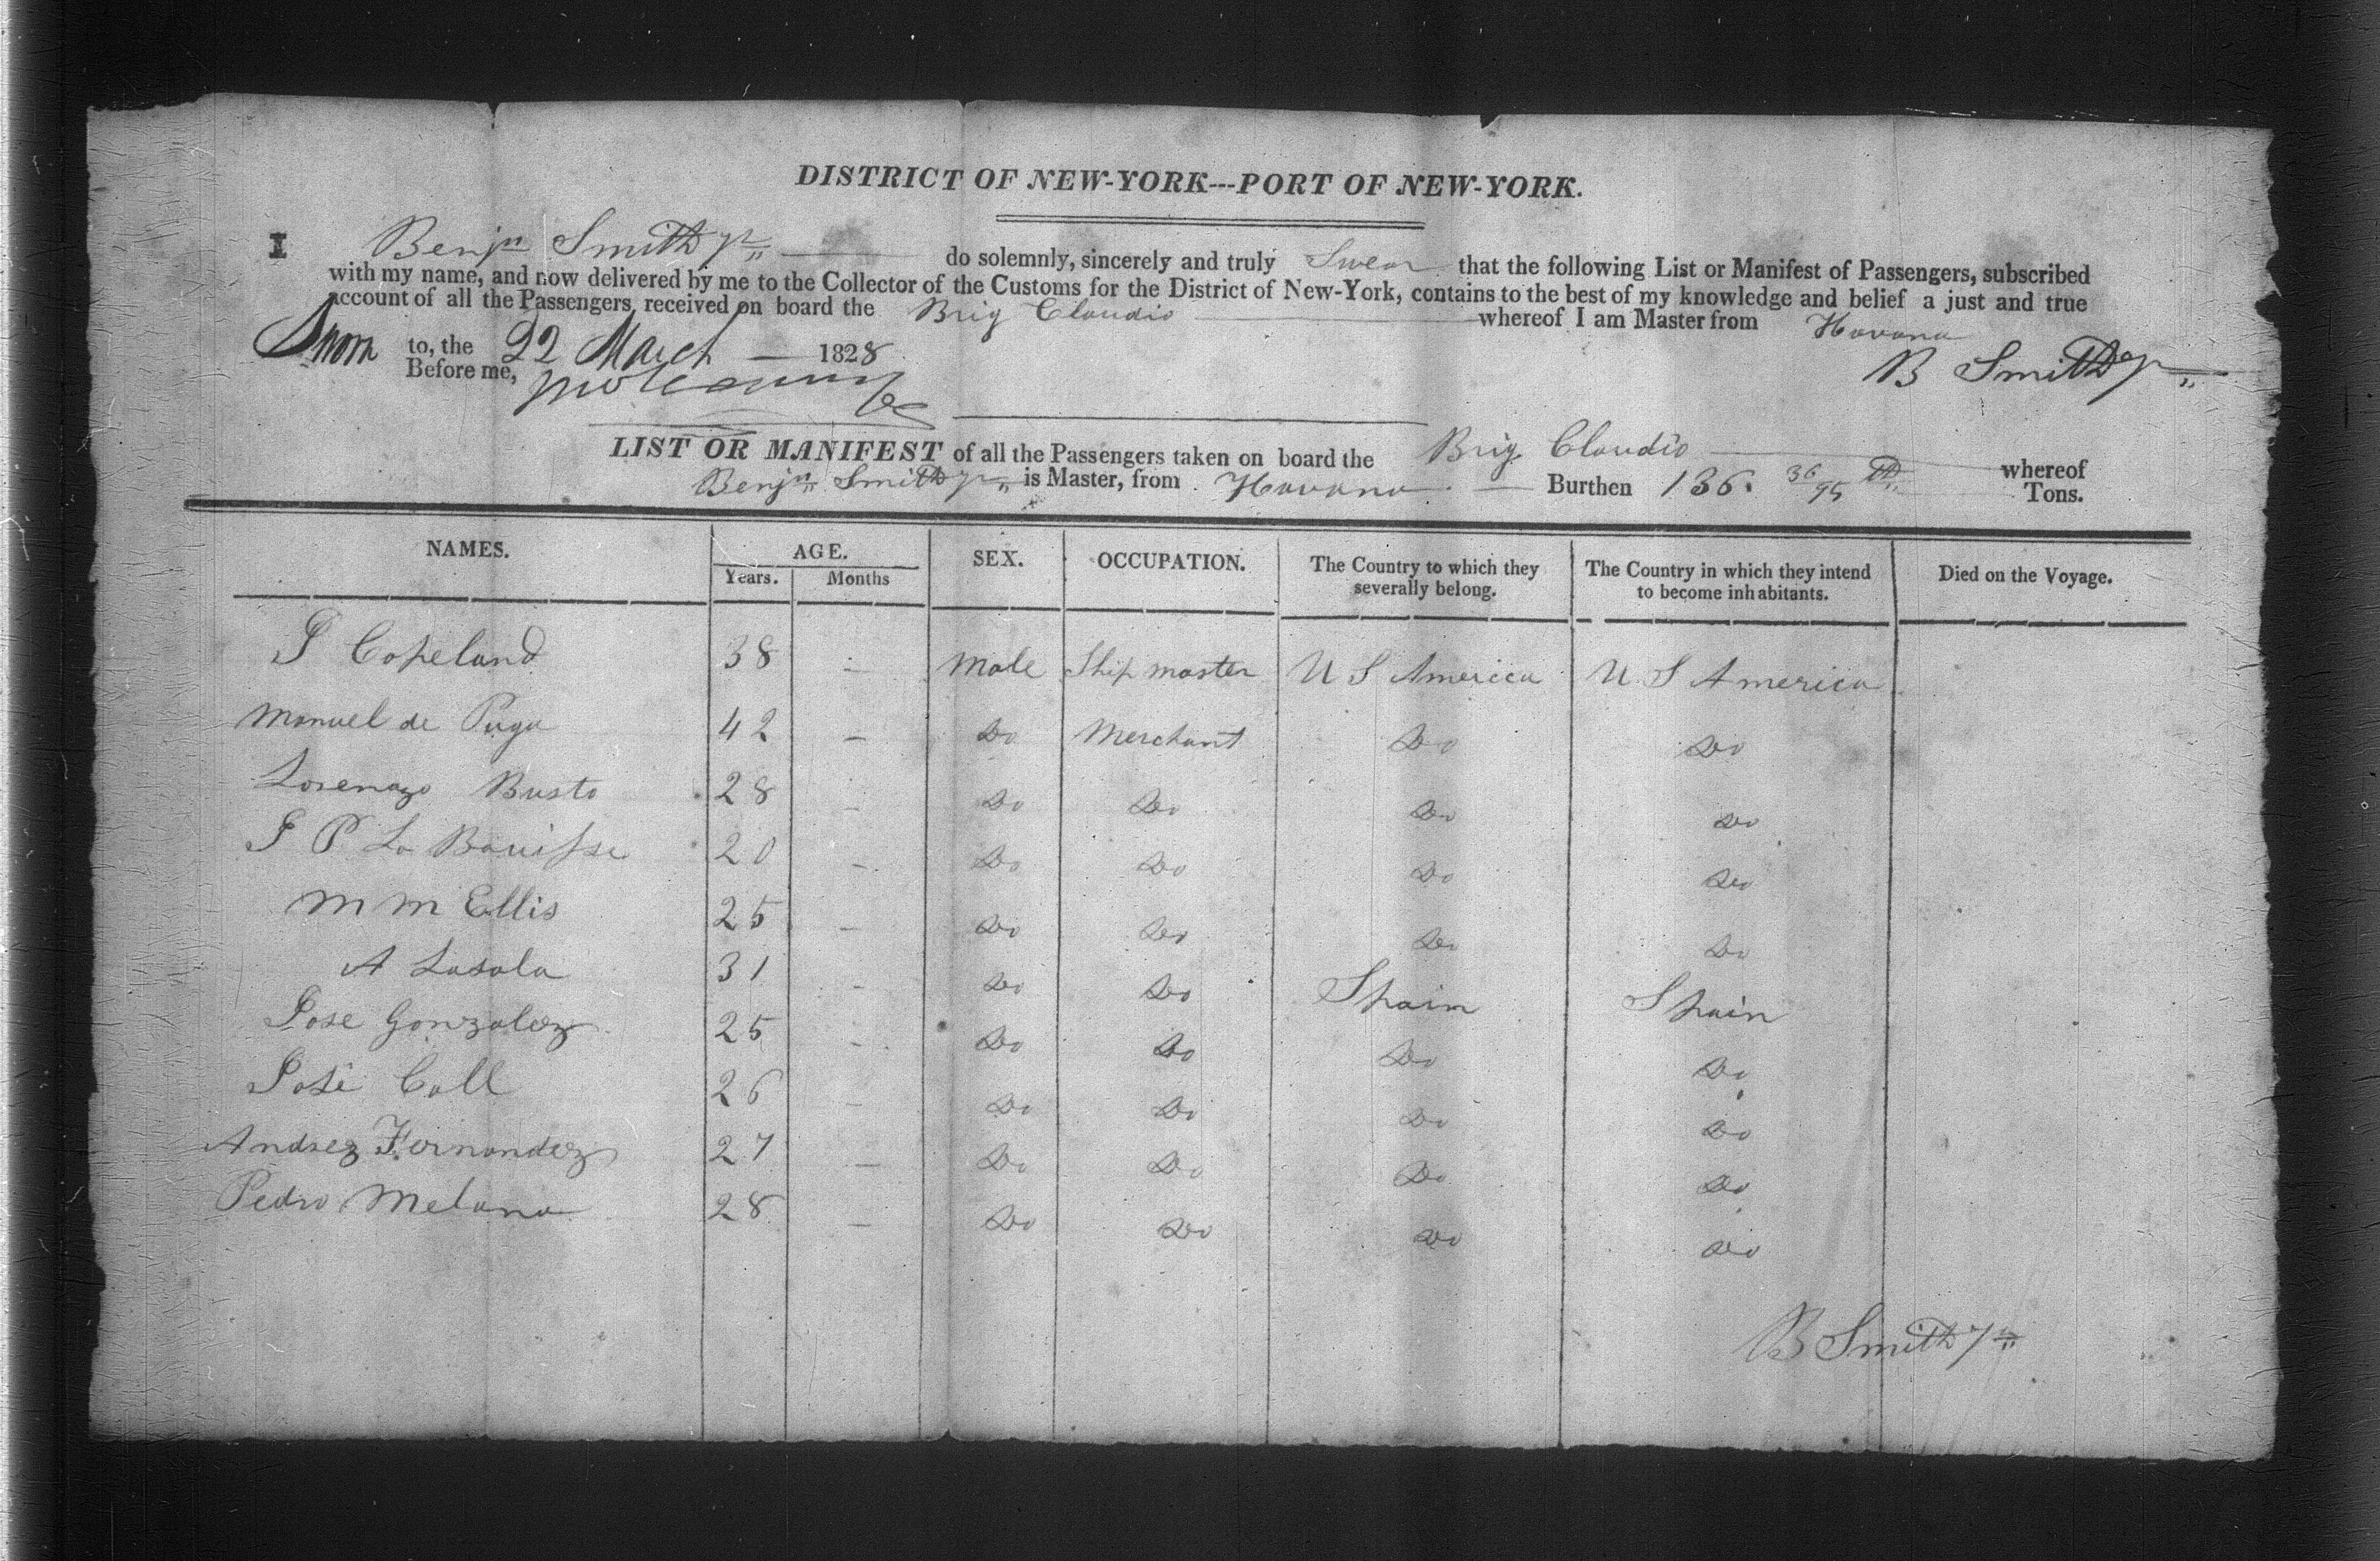 DISTRICT OF NEW-YORK---PORT OF NEW-YORK.
I Benjn Smith Jr do solemnly, sincerely and truly Swear that the following List or Manifest of Passengers, subscribed
with my name, and now delivered by me to the Collector of the Customs for the District of New-York, contains to the best of my knowledge and belief a just and true
account of all the Passengers received on board the Brig Claudio whereof I am Master from Havana
Sworn to, the 22 March — 1828
Before me,
B Smith Jr
LIST OR MANIFEST of all the Passengers taken on board the Brig Claudio whereof
Benjn Smith Jr is Master, from Havana — Burthen 136. 36/95 th Tons.
NAMES. AGE. SEX. OCCUPATION. The Country to which they severally belong. The Country in which they intend to become inhabitants. Died on the Voyage.
Years. Months
Copeland 38 — Male Ship master U S America U S America
Manuel de Puga 42 — Do Merchant Do Do
Lorenazo Busto 28 — Do Do Do Do
P La 20 — Do Do Do Do
M M Ellis 25 — Do Do Do Do
A Lasala 31 — Do Do Spain Spain
Jose Gonzalez 25 — Do Do Do Do
José Coll 26 — Do Do Do Do
Andrez Fernandez 27 — Do Do Do Do
Pedro Melana 28 — Do Do Do Do
B Smith Jr